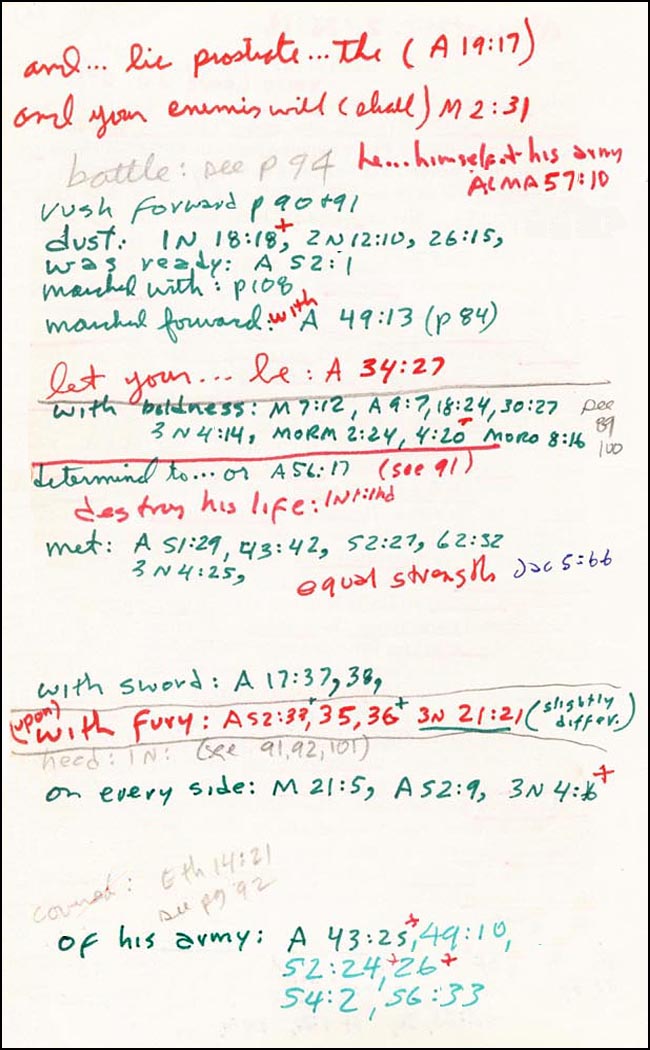 and... lie prostrate... the (A 19:17)
and your enemis will (shall) M 2:31
battle: see p 94
he... himself & his army
ALMA 57:10
rush forward p 90+91
dust: 1N 18:18,+ 2N 12:10, 26:15,
was ready: A 52:1
marched with: p108
marched forward: with A 49:13 (p 84)
let your... be: A 34:27
with boldness: M 7:12, A 9:7, 18:24, 30:27 see 89
3 N 4:14, MORM 2:24, 4:20 MORO 8:16 100
determind to... or A 56:17 (see 91)
destroy his life: 1N1:
met: A 51:29, 43:42, 52:27, 62:32
3 N 4:25,
equal strength Jac 5:66
with sword: A 17:37, 38,
(upon) with fury: A 52:33,+ 35, 36+ 3N 21:21 (slightly differ.)
heed: 1N: (see 91, 92, 101)
on every side: M 21:5, A 52:9, 3 N 4:16+
covered: Eth 14:21
see pg 92
of his army: A 43:25,+ 49:10,
52:24,+ 26+
54:2, 56:33